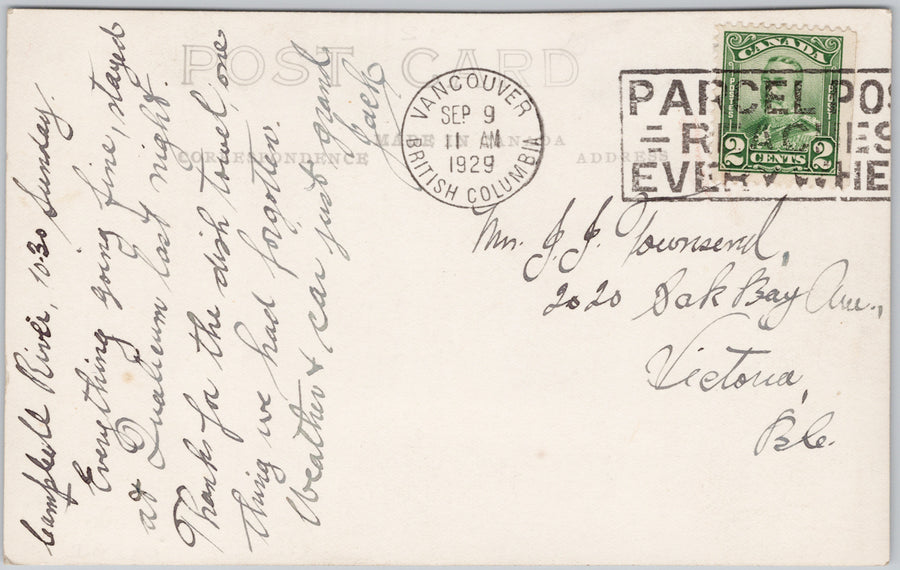 POST CARD
MADE IN CANADA
CORRESPONDENCE
ADDRESS
Campbell River, 10:30 Sunday.
Everything going fine, stayed
at Qualicum last night.
Thanks for the dish towel, one
thing we had forgotten.
Weather & car just grand
Jack
VANCOUVER
SEP 9
11 AM
1929
BRITISH COLUMBIA
CANADA
POSTES POSTAGE
2 CENTS 2
PARCEL POS
= REACHES
EVERYWHE
Mrs. J. J. Townsend,
2020 Oak Bay Ave.,
Victoria,
B.C.